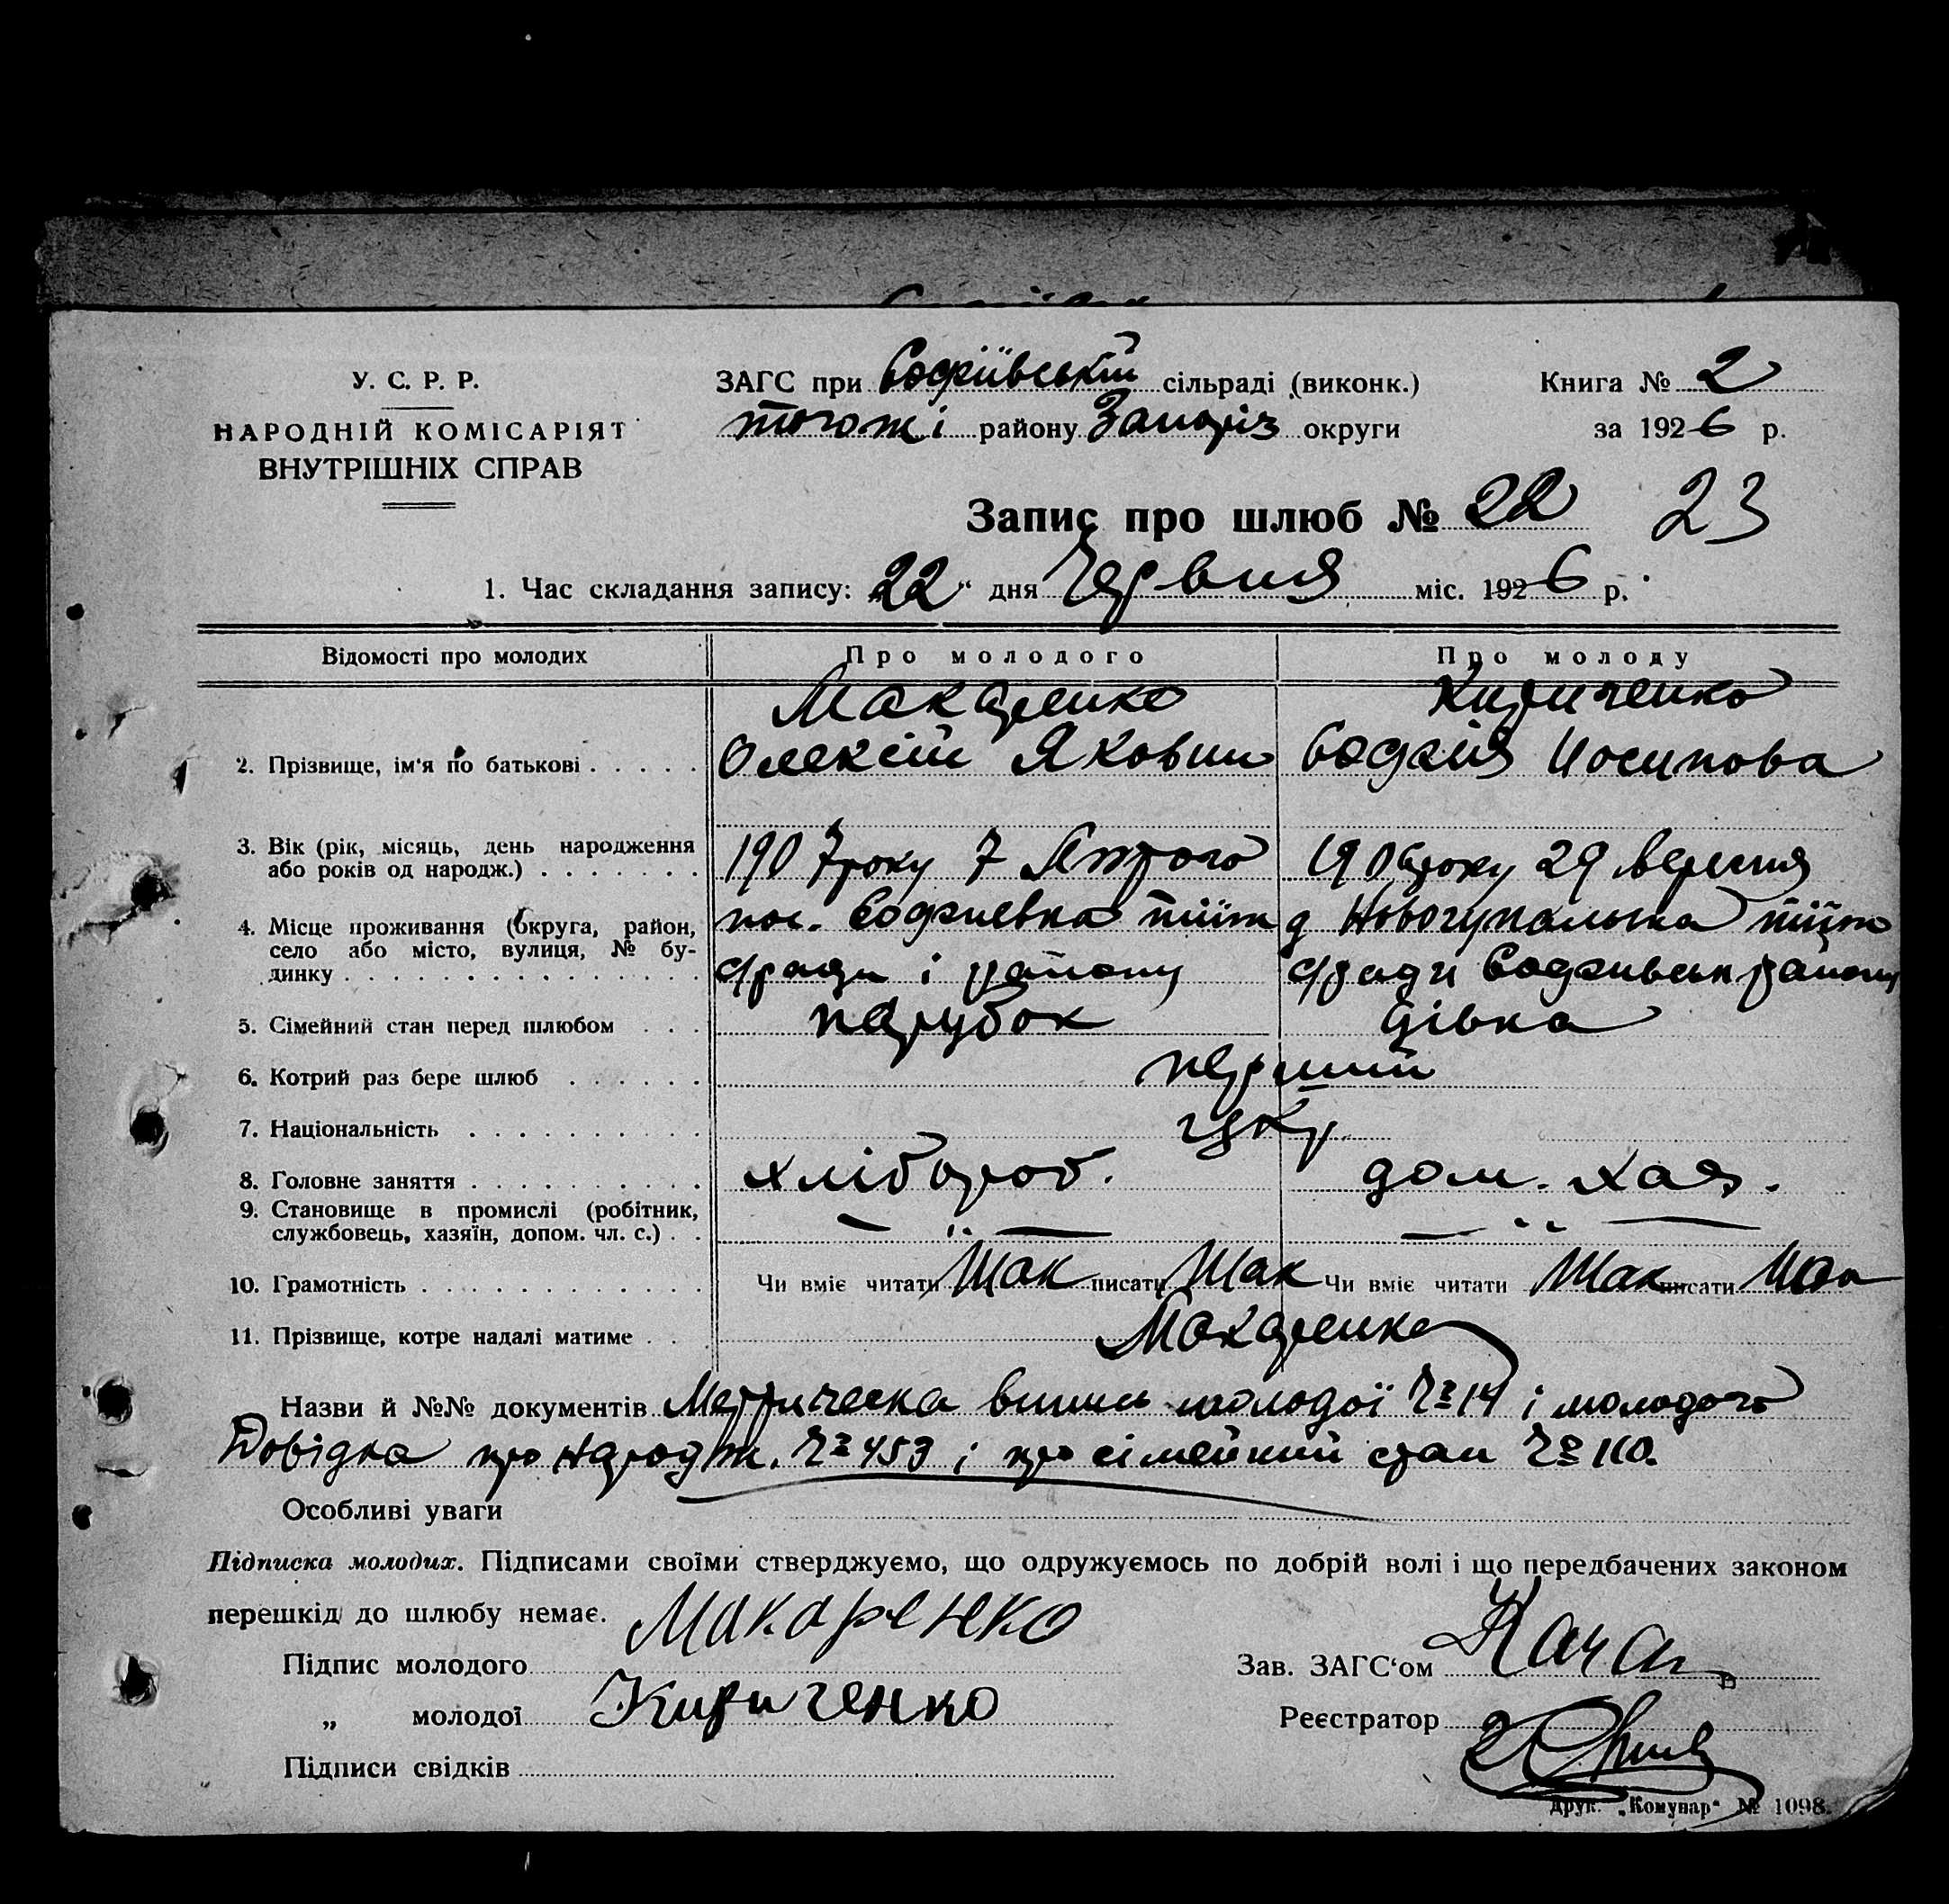 У. С. Р. Р.
НАРОДНІЙ КОМІСАРІЯТ
ВНУТРІШНІХ СПРАВ
ЗАГС при Софіївській сільраді (виконк.)
тогож і району Запоріз округи
Книга № 2
за 1926 р.
Запис про шлюб № 22 23
1. Час складання запису: 22 " дня Червня міс. 1926 р.
Відомості про молодих Про молодого Про молоду
Макаренко Кириченко
2. Прізвище, ім'я по батькові Олексій Якович Софія Иосипова
3. Вік (рік, місяць, день народження
або років од народж.) 1907 року 7 Лютого 1906 року 29 вересня
4. Місце проживання (округа, район,
село або місто, вулиця, № бу-
динку
пос. Софиевка тіїж д Новогупалька тіїж
с/ради і району с/ради Софиевськ району
5. Сімейний стан перед шлюбом парубок дівка
6. Котрий раз бере шлюб перший
7. Національність укр.
8. Головне заняття хлібороб. дом. хаз.
9. Становище в промислі (робітник,
службовець, хазяїн, допом. чл. с.) — " — — " —
10. Грамотність Чи вміє читати Так писати Так Чи вміє читати Так писати Так
11. Прізвище, котре надалі матиме Макаренко
Назви й №№ документів Метрическа випис молодої № 14 і молодого
Довідка про народж. № 453 і про сімейний стан № 110.
Особливі уваги
Підписка молодих. Підписами своїми стверджуємо, що одружуємось по добрій волі і що передбачених законом
перешкід до шлюбу немає.
Підпис молодого Макаренко
„ молодої Кириченко
Підписи свідків
Зав. ЗАГС'ом
Реєстратор
Друк. „Комунар" № 1098.